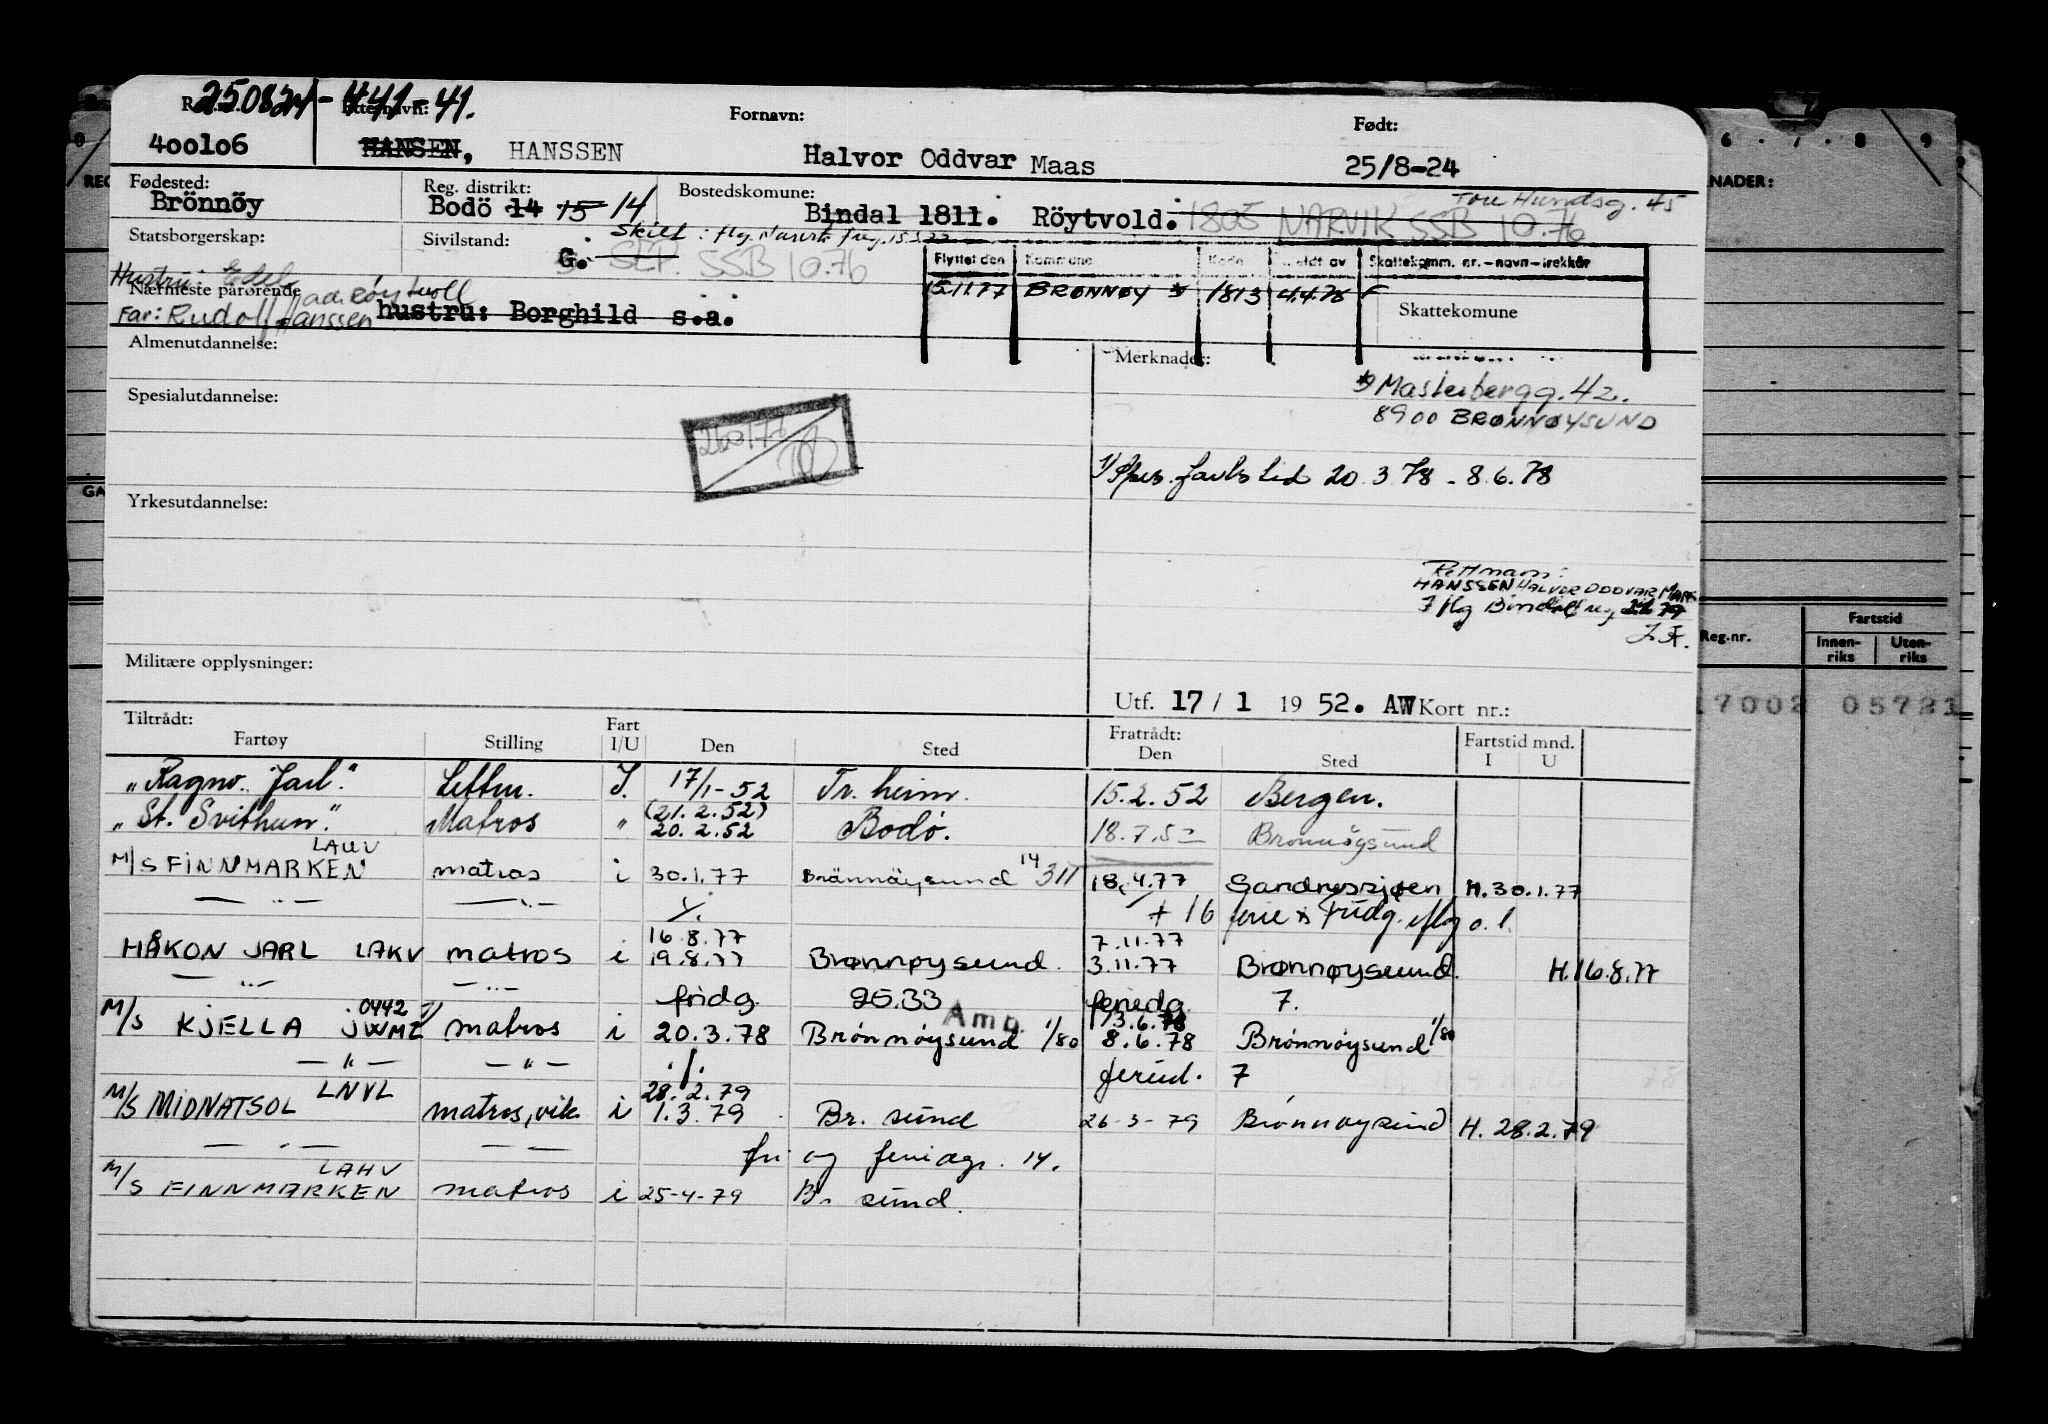 250824-441-41.
Etternavn: Fornavn: Født:
400106 HANSEN, HANSSEN Halvor Oddvar Maas 25/8-24
Fødested: Reg. distrikt: Bostedskomune: Tore Hundsg. 45
Brönnöy Bodö 14 15 14 Bindal 1811. Röytvold. 1805 NARVIK SSB 10.76
Statsborgerskap: Sivilstand: Skilt: flg.
G. SEP. SSB 10.76
Flyttet den Kommune Kode Meldt av Skattekomm. nr.-navn-trekkår
Hustru:
Nærmeste pårørende 15.11.77 BRØNNØY *) 1813 4.4.78 F
Far: Rudolf Hanssen hustru: Borghild s.a. Skattekomune
Almenutdannelse: Merknader:
*) Masterbergg. 42.
Spesialutdannelse: 8900 BRØNNØYSUND
260177
1) Spes. fartstid 20.3.78 - 8.6.78
Yrkesutdannelse:
Rett navn:
HANSSEN HALVOR ODDVAR MAAS
flg Bindal
J.F.
Militære opplysninger:
Utf. 17 / 1 19 52. AW Kort nr.:
Tiltrådt: Fart Fratrådt: Fartstid mnd.
Fartøy Stilling I/U Den Sted Den Sted I U
"Ragnv. Jarl." Lettm. I. 17/1-52 Tr. heim. 15.2.52 Bergen.
(21.2.52)
"St. Svithun." Matros " 20.2.52 Bodö. 18.7.52 Brønnøysund
M/S FINNMARKEN matros i 30.1.77 Brönnöysund 14 311 18.4.77 Sandnessjøen H.30.1.77
— " — — " — ./. + 16 ferie & fridg. o.l.
16.8.77 7.11.77
HÅKON JARL LAKV matros i 19.8.77 Brønnøysund. 3.11.77 Brønnøysund. H.16.8.77
— " — — " — fridg. 25.33 feriedg. 7.
0442 Amb. 13.6.78
M/S KJELLA JWMZ 1) matros i 20.3.78 Brønnøysund 1/80 8.6.78 Brønnøysund 1/80
— " — — " — ./. feried. 7
LNVL 28.2.79
M/S MIDNATSOL matros, vik i 1.3.79 Br. sund 26-3-79 Brønnøysund H. 28.2.79
— " — — — fri og feriedgr. 14.
LAHV
M/S FINNMARKEN matros i 25-4-79 Br. sund.
6 . 7 . 8 . 9
NADER:
REG
GA
Fartstid
Reg.nr. Innen-riks Uten-riks
17002 05721